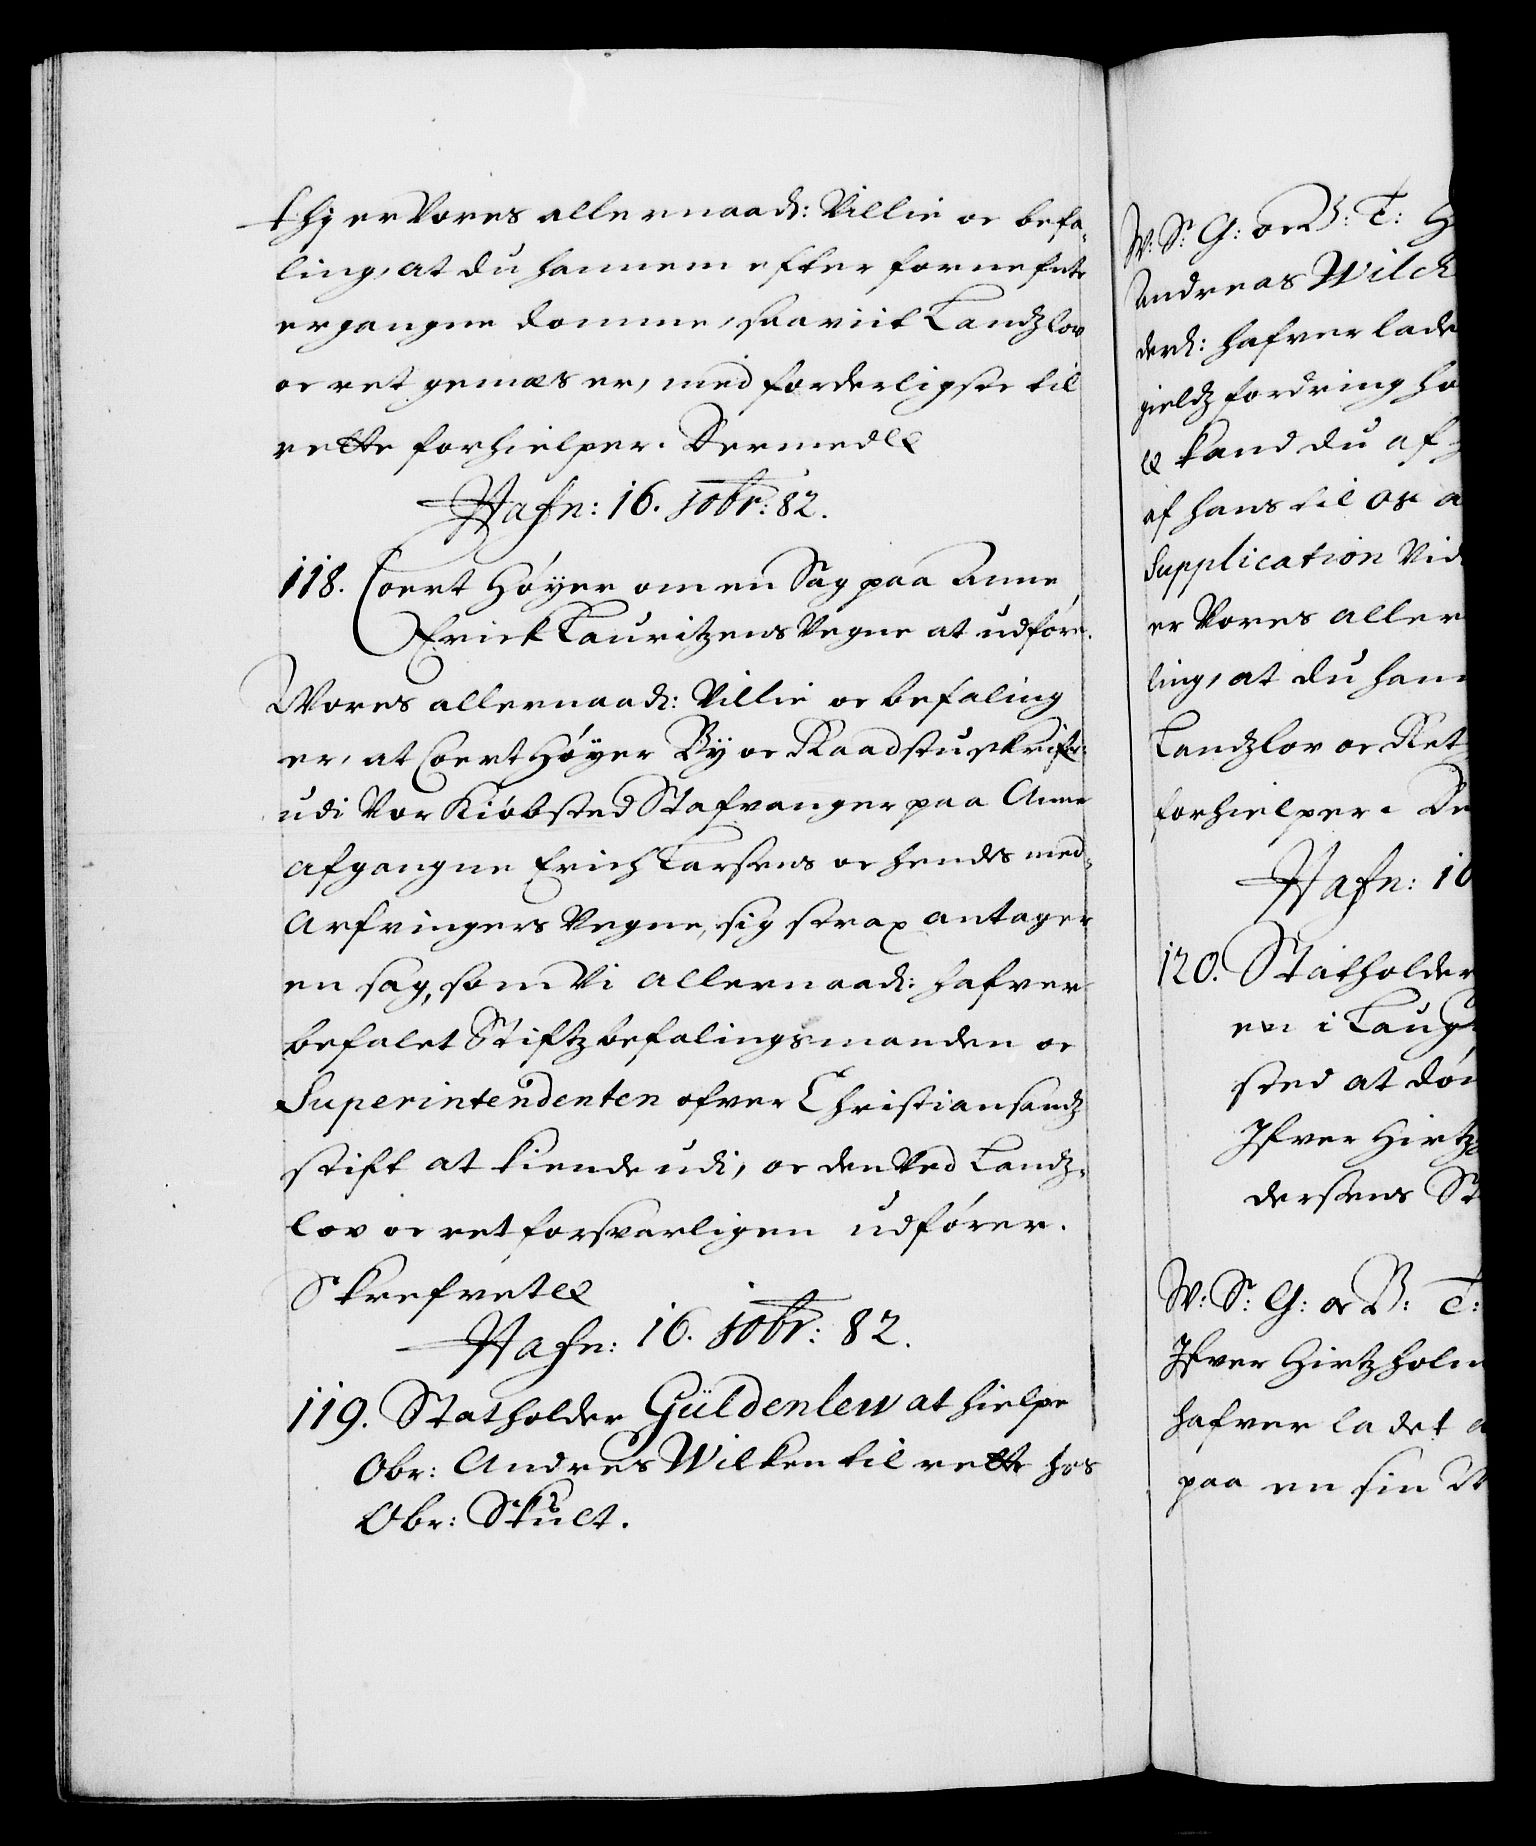 thj er Vores allernaad: Villie oc befa-
ling, at du hannem efter fornefnte
ergangne domme, saavit Landzlov
oc ret gemæs er, med forderligste til
rette forhielper. Dermed &c
Hafn: 16. 10br: 82.
118. Coert Höyer om en Sag paa Anne
Erick Lauritzens Vegne at udföre.
Wores allernaad: Villie oc befaling
er, at Coert Höyer By oc Raadstuskrifr:
udi Vor Kiöbsted Stafvanger paa Anne
afgangne Erich Larsens oc hendes med-
Arfvingers Vegne, sig strax antager
en sag, som Vi allernaad: hafver
befalet Stiftzbefalingsmanden oc
Superintendenten ofver Christiansandz
stift at kiende udi, oc den Ved Landz-
lov oc ret forsvarligen udförer.
Skrefvet &c
Hafn: 16. 10br: 82.
119. Statholder Güldenlew at hielpe
Obr: Andres Wilken til rette hos
Obr: Skult.
W: S: G: oc B: T:
Andreas Wilck
derd: hafver lade
gieldz fordring ho
&c kand du af
af hans til os a
Supplication Vid
er Vores aller
ling, at du han
Landzlov oc Ret
forhielper. De
Hafn: 16
120. Statholder
en i Laug
sted at döm
Ifver Hirtz
dersens St
W: S: G: oc B: T:
Ifver Hirtzholm
hafver ladet a
paa en sin